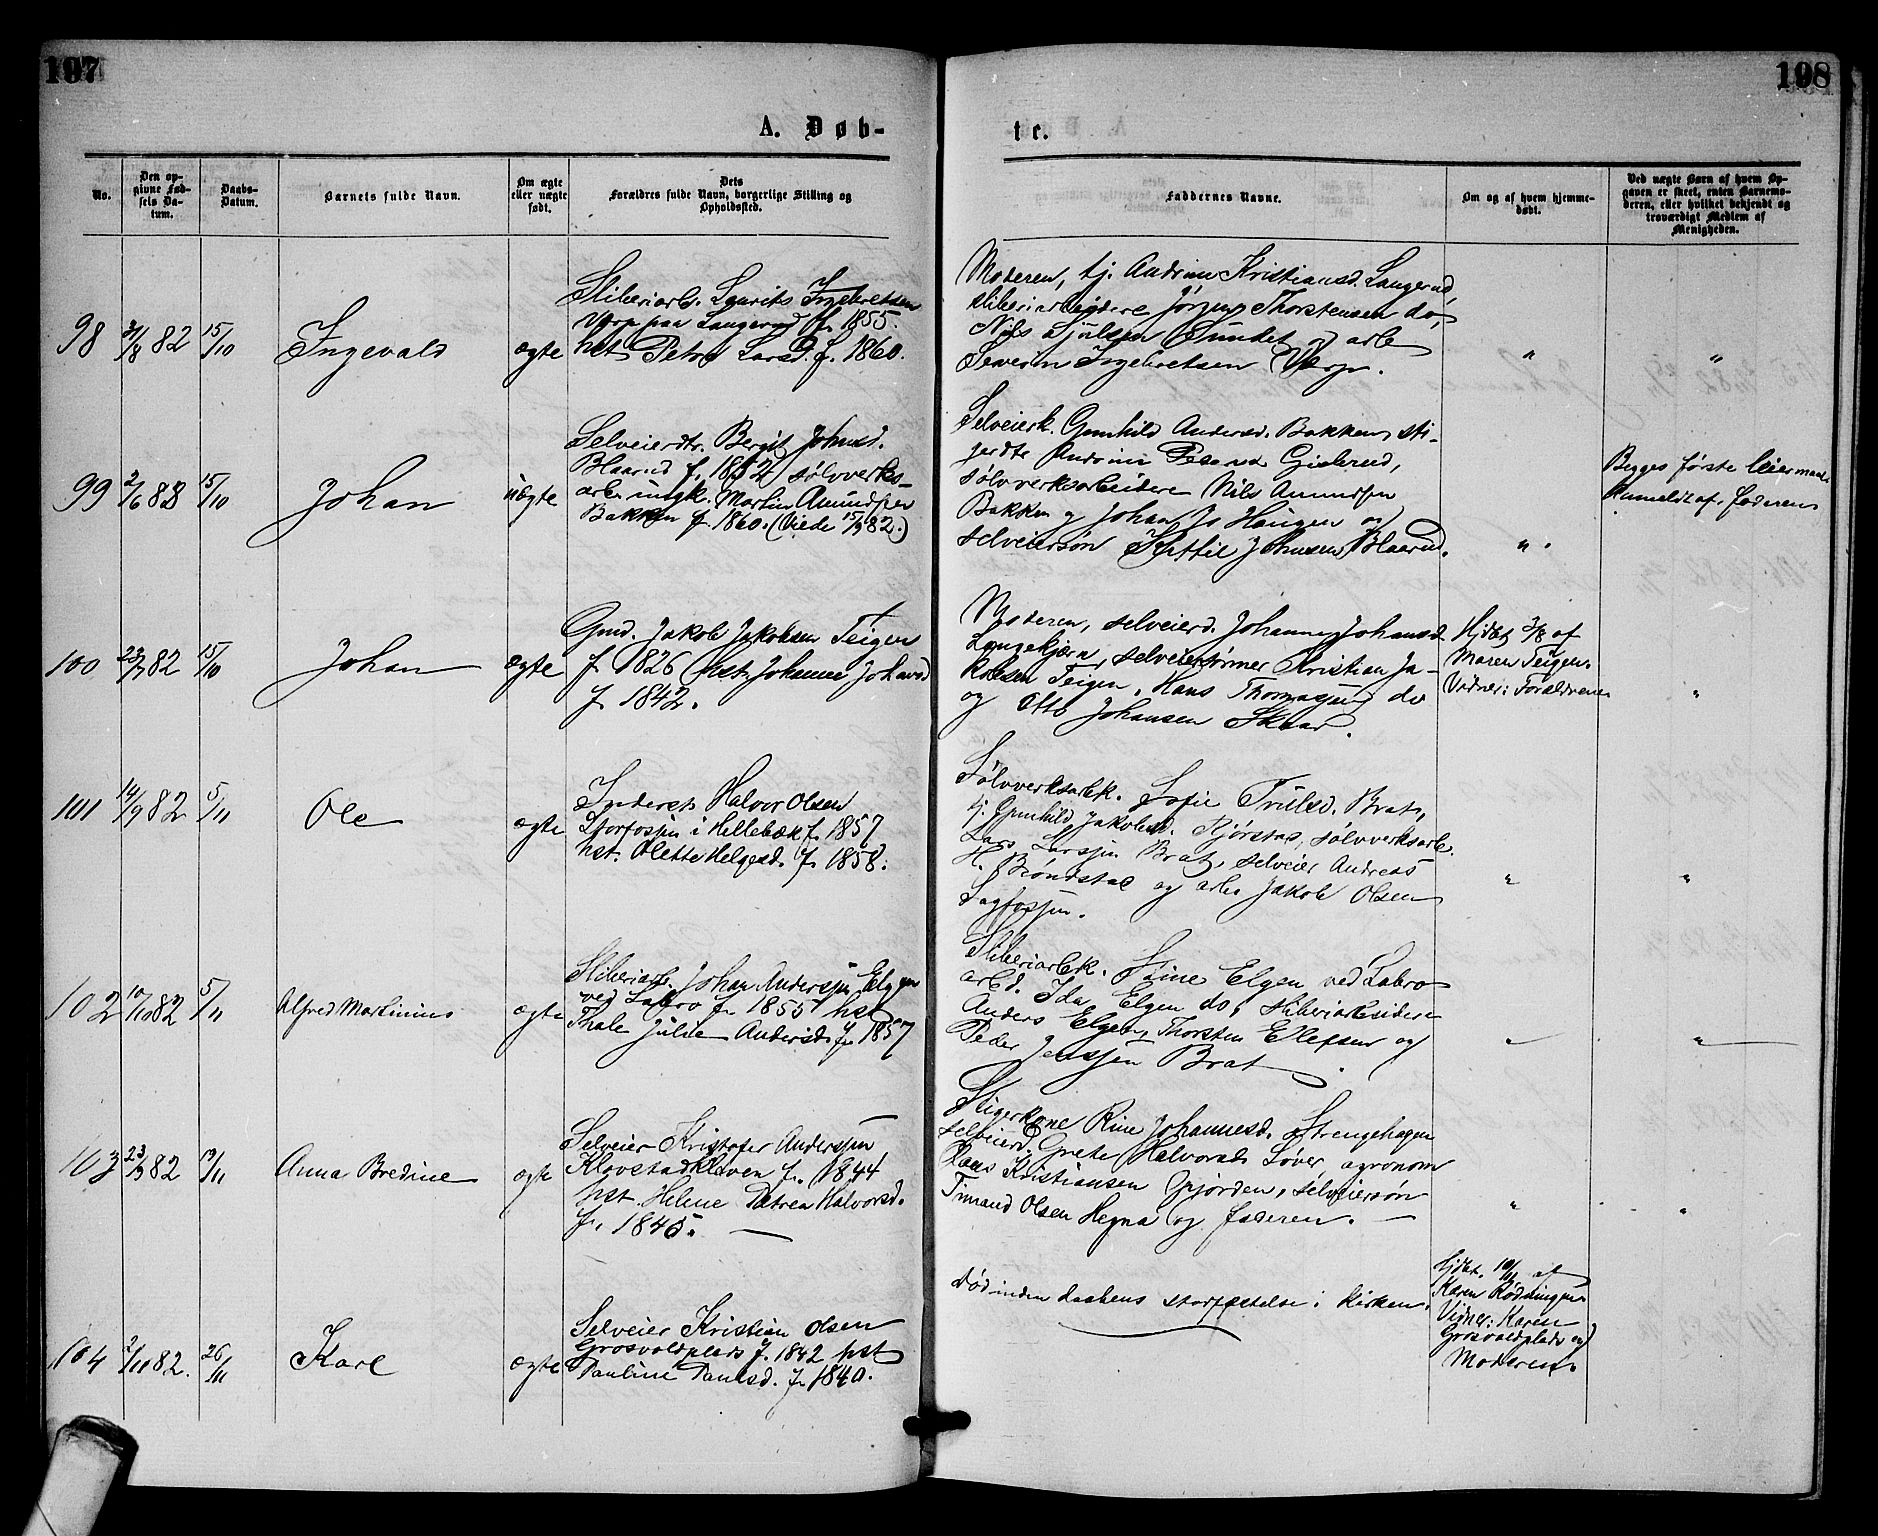 197
198
A. Døb-
te.
No.
Den op-
givne Fød-
sels Da-
tum.
Daabs-
Datum.
Barnets fulde Navn.
Om ægte
eller uægte
født.
Dets
Forældres fulde Navn, borgerlige Stilling og
Opholdssted.
Faddernes Navne.
Om og af hvem hjemme-
døbt.
Ved uægte Børn af hvem Op-
gaven er skeet, enten Barnemo-
deren, eller hvilket bekjendt og
troværdigt Medlem af
Menigheden.
98
82
15/10
Ingevald
ægte
Sliberiarb. Laurits Ingebretsen
Vorp paa Langerud f. 1855.
hst Petra Larsd. f. 1860.
Moderen, tj. Andrine Kristiansd. Langerud,
sliberiarbeidere Jørgen Thorstensen do,
Nils Sjulsen Sundet og arb
Severin Ingebretsen Vorp.
"
"
99
2/6 82
15/10
Johan
uægte
Selveierdtr. Bergit Johnsd.
Blaarud f. 1862 sølvverks-
arb. ungk. Martin Amundsen
Bakken f. 1860. (Viede 15/9 82.)
Selveierk. Gunhild Andersd. Bakken, sti-
gerdtr Andrine Gislerud,
sølvverksarbeidere Nils Amundsen
Bakken og Johan Js Haugen og
selveiersøn Kittil Johnsen Blaarud.
"
Begges første leiermaal
Anmeldt af faderen
100
23/7 82
15/10
Johan
ægte
Gmd. Jakob Jakobsen Teigen
f. 1826 hst Johanne Johansd
f. 1842.
Moderen, selveierd. Johanne Johansd
Langekjærn, selveiersønner Kristian Ja-
kobsen Teigen, Hans Thomassen do
og Otto Johansen Skaar.
Hjdøbt 3/8 af
Maren Teigen.
Vidner: Forældrene
"
101
14/9 82
5/11
Ole
ægte
Inderst Halvor Olsen
Storfossen i Hellebæk f. 1857
hst. Olette Helgesd. f. 1858.
Sølvverksarbk. Sofie Trulsd. Brat,
tj. Gunhild Jakobsd. Kjørstad, sølvverksarb.
Lars Larssen Brat, selveier Andreas
H. Brøndstad og arb Jakob Olsen
Sagfossen.
"
"
102
10/10 82
5/11
Alfred Martinius
ægte
Sliberiarb. Johan Anderssen Elgen
ved Labro f. 1855 hst
Thale Julie Andersd. f. 1857
Sliberiarbk. Stine Elgen ved Labro
arbd. Ida Elgen do, sliberiarbeidere
Anders Elgen, Thorsten Ellefsen og
Peder Jenssen Brat.
"
"
103
23/9 82
19/11
Anna Bredine
ægte
Selveier Kristofer Anderssen
Klovstadkleven f. 1844
hst Helene Petrea Halvorsd.
f. 1845.
Stigerkone Rine Johannesd. Strengehagen
selveierd Grete Halvorsd. Løver, agronom
Hans Kristiansen Gjorden, selveiersøn
Timand Olsen Hegna og faderen.
"
"
104
2/11 82.
26/11
Karl
ægte
Selveier Kristian Olsen
Grosvoldplads f. 1842 hst
Pauline Paulsd. f. 1840.
Død inden daabens stadfæstelse i kirken.
Hjdøbt. 10/11 af
Karen Rødningen.
Vidner: Karen
Grosvoldplads og
Moderen.